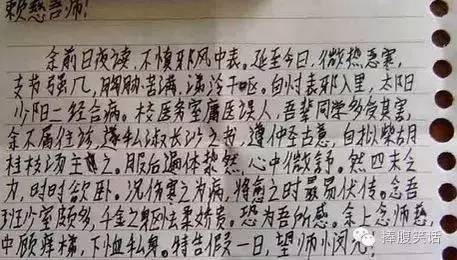 慈吾师!
余前日夜读,不慎邪风中表。延至今日,微热恶寒,
支节强几,胸胁苦满,涕泠干呕。自忖表邪入里,太阳
少阳二经合病。校医务室庸医误人,吾辈同学多受其害,
余不屑往诊,遂私淑长沙之书,遵仲圣古意,自拟柴胡
桂枝汤主之。服后遍体然,心中微舒。然四末乏
力,时时欲卧。况伤寒之为病,将愈之时最易伏传。念吾
班少室颇多,千金之躯怯柔娇贵。恐为吾所感。余上念师慈,
中顾痒横,下恤私身。特告假一日,望师怜悯允!
捧腹笑话